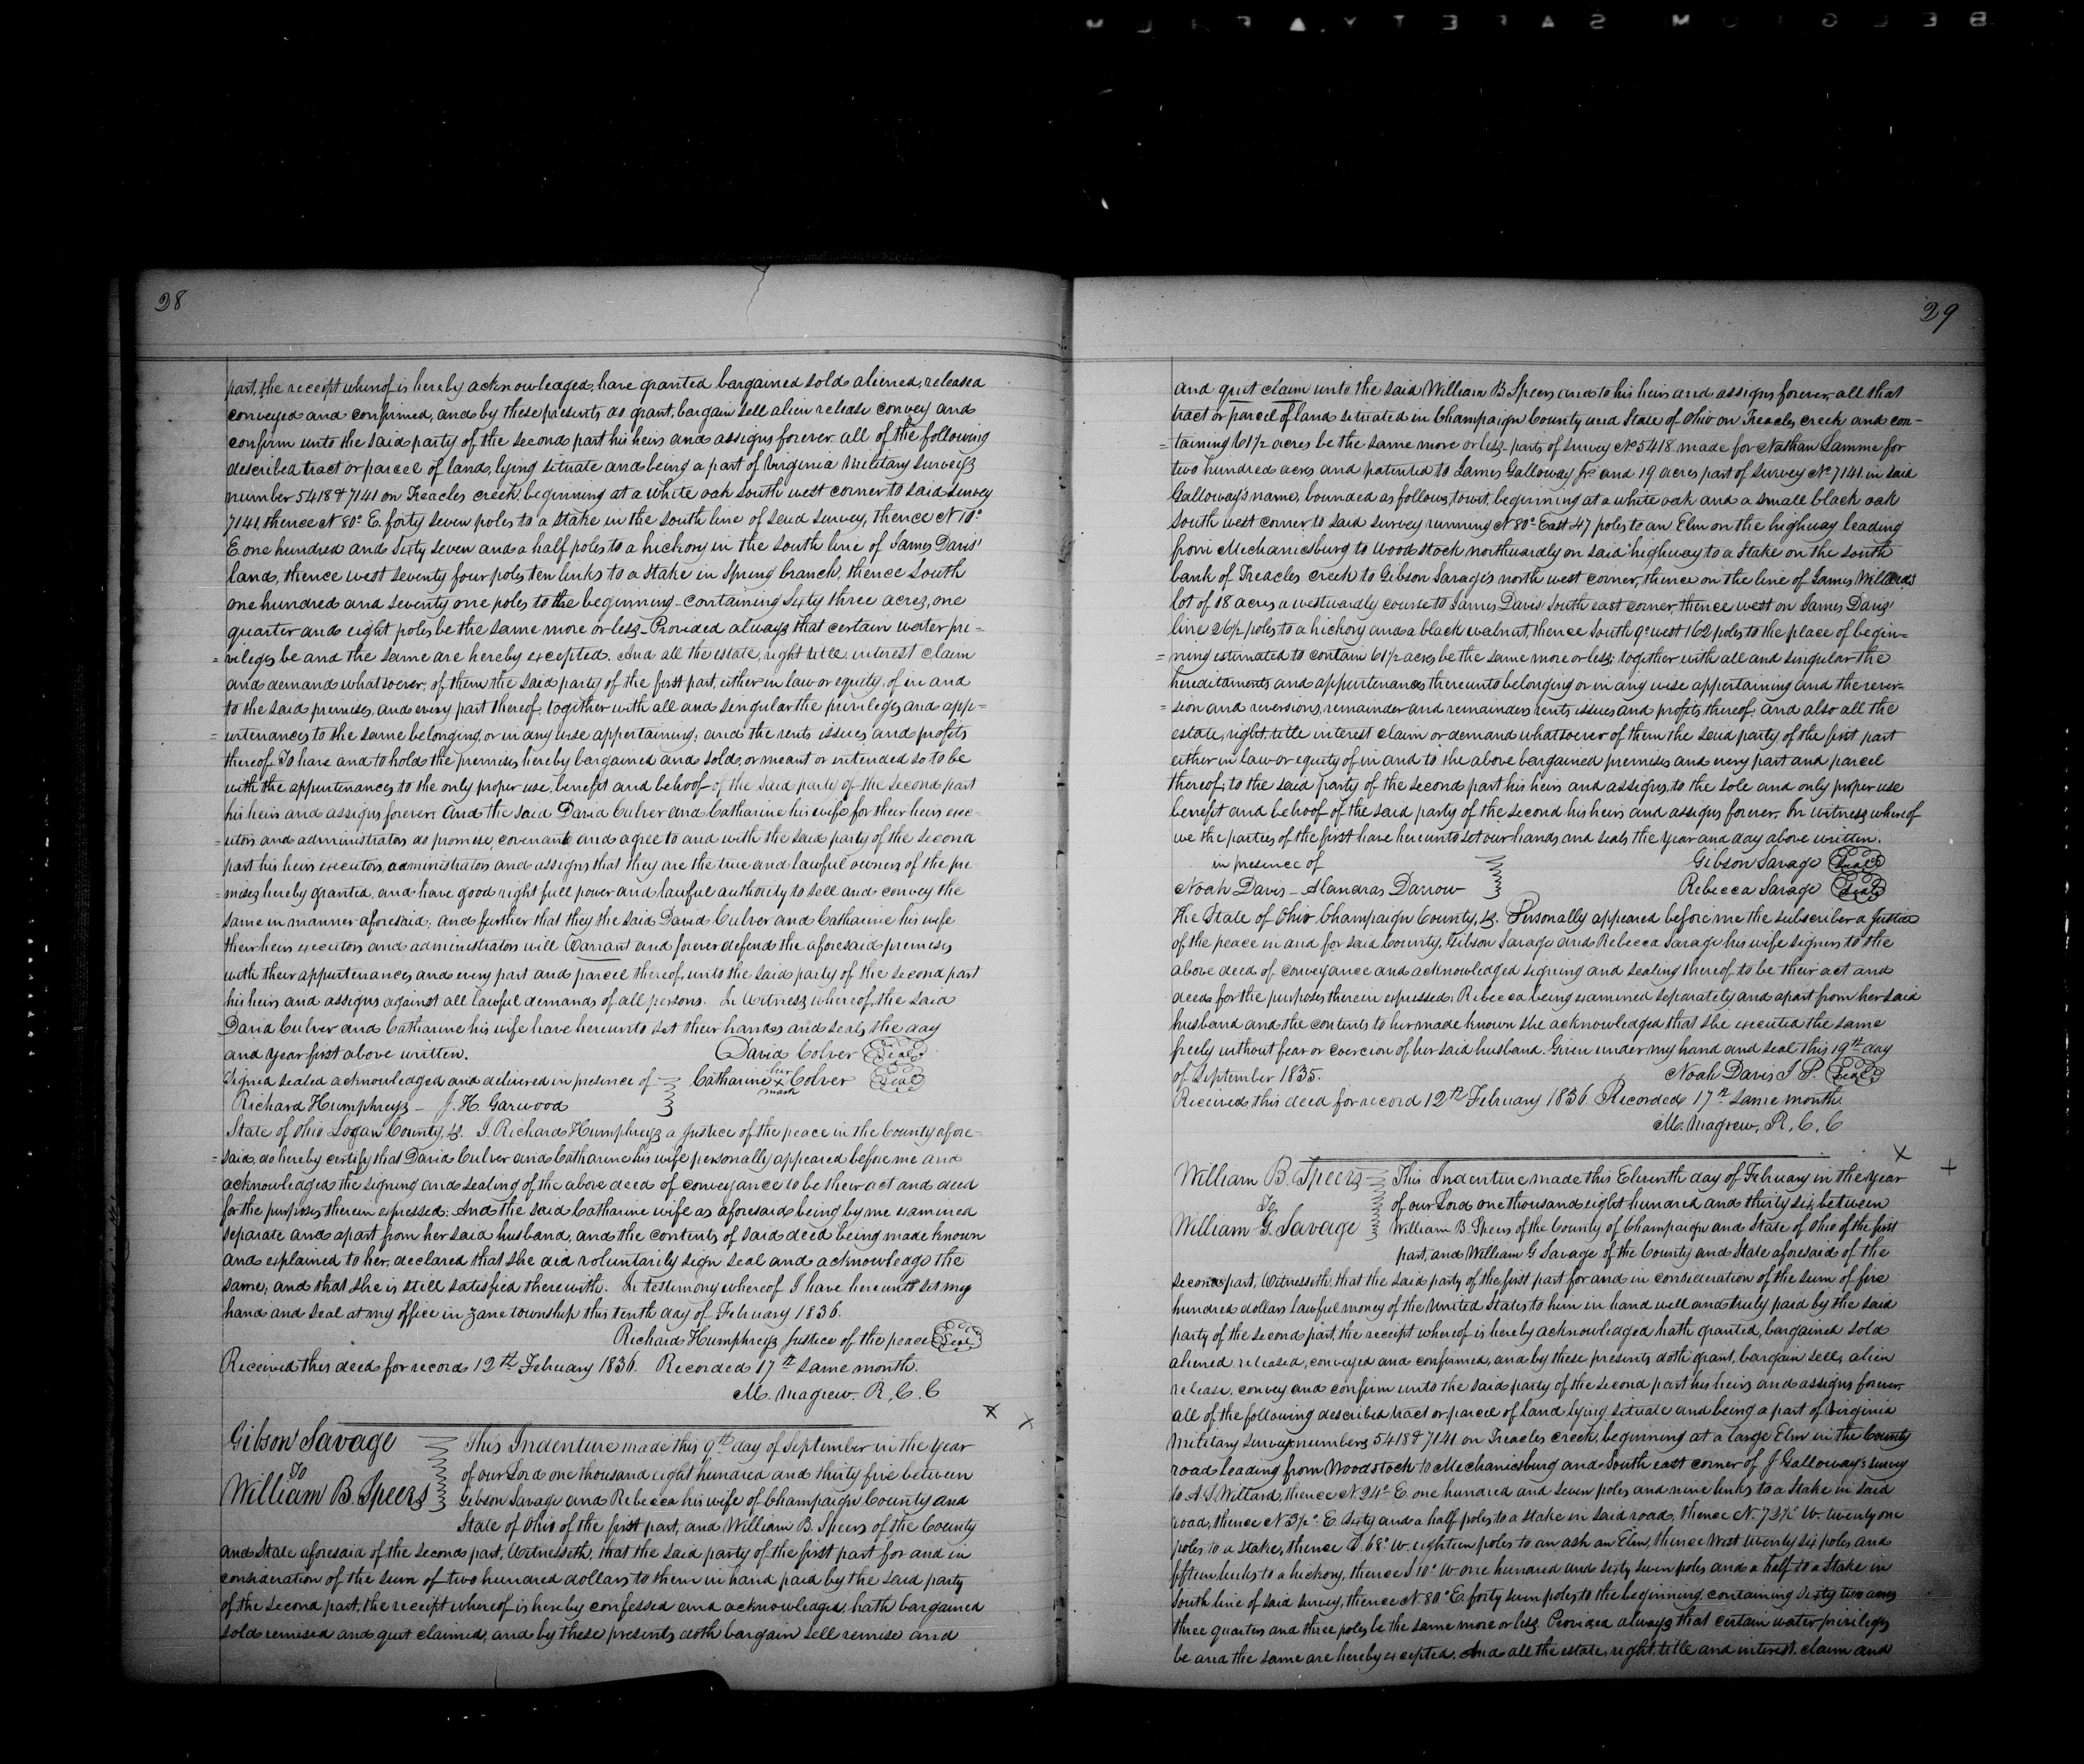 BELGIUM SAFETY ▲ FILM
28
part, the receipt whereof is hereby acknowledged, have granted bargained sold aliened, released
conveyed and confirmed, and by these presents do grant, bargain sell alien release convey and
confirm unto the said party of the second part his heirs and assigns forever. all of the following
described tract or parcel of land, lying situate and being a part of Virginia Military surveys
number 5418 & 7141 on Treacles creek, beginning at a white oak south west corner to said survey
7141, thence N 80° E. forty seven poles to a stake in the south line of said survey, thence N 10°
E one hundred and Sixty seven and a half poles to a hickory in the south line of James Davis'
land, thence west seventy four poles ten links to a stake in Spring branch, thence South
one hundred and seventy one poles to the beginning - containing Sixty three acres, one
quarter and eight poles be the same more or less - Provided always that certain water pri=
=vileges be and the same are hereby excepted. And all the estate, right title, interest claim
and demand whatsoever, of them the said party of the first part, either in law or equity, of in and
to the said premises, and every part thereof, together with all and singular the privileges and app=
=urtenances to the same belonging, or in any wise appertaining; and the rents issues and profits
thereof. To have and to hold the premises hereby bargained and sold, or meant or intended so to be
with the appurtenances to the only proper use, benefit and behoof of the said party of the second part
his heirs and assigns forever. And the said David Culver and Catharine his wife for their heirs exec-
=utors and administrators do promise, covenant and agree to and with the said party of the second
part his heirs executors, administrators and assigns that they are the true and lawful owners of the pre
=mises hereby granted, and have good right full power and lawful authority to sell and convey the
same in manner aforesaid; and further that they the said David Culver and Catharine his wife
their heirs executors and administrators will Warrant and forever defend the aforesaid premises
with their appurtenances and every part and parcel thereof, unto the said party of the second part
his heirs and assigns against all lawful demands of all persons. In Witness whereof, the said
David Culver and Catharine his wife have hereunto set their hands and seals the day
and year first above written. David Colver Seal
Signed sealed acknowledged and delivered in presence of Catharine her x mark Colver Seal
Richard Humphreys - J. H. Garwood
State of Ohio Logan County, ss. I, Richard Humphreys a Justice of the peace in the County afore=
=said, do hereby certify that David Culver and Catharine his wife personally appeared before me and
acknowledged the signing and sealing of the above deed of conveyance to be their act and deed
for the purposes therein expressed; And the said Catharine wife as aforesaid being by me examined
separate and apart from her said husband, and the contents of said deed being made known
and explained to her, declared that she did voluntarily sign seal and acknowledge the
same, and that she is still satisfied therewith. In testimony whereof I have hereunto set my
hand and seal at my office in Zane township this tenth day of February 1836.
Richard Humphreys Justice of the peace Seal
Received this deed for record 12th February 1836. Recorded 17th same month.
M. Magrew. R, C, C
Gibson Savage
To
William B. Speers
This Indenture made this 9th day of September in the year
of our Lord one thousand eight hundred and thirty five between
Gibson Savage and Rebecca his wife of Champaign County and
State of Ohio of the first part, and William B. Speers of the County
and State aforesaid of the second part, Witnesseth, that the said party of the first part for and in
consideration of the sum of two hundred dollars to them in hand paid by the said party
of the second part, the receipt whereof is hereby confessed and acknowledged, hath bargained
sold remised and quit claimed, and by these presents doth bargain sell remise and
29
and quit claim unto the said William B Speers and to his heirs and assigns forever, all that
tract or parcel of land situated in Champaign County and State of Ohio on Treacles creek and con-
=taining 61½ acres be the same more or less - parts of survey No 5418 made for Nathan Lamme for
two hundred acres and patented to James Galloway Jr. and 19 acres part of survey No. 7141 in said
Galloway's name, bounded as follows, towit, beginning at a white oak and a small black oak
south west corner to said survey running N 80° East 47 poles to an Elm on the highway leading
from Mechanicsburg to Woodstock northwardly on said highway to a Stake on the south
bank of Treacles creek to Gibson Savage's north west corner, thence on the line of James Willards
lot of 18 acres a westwardly course to James Davis' South east corner, thence west on James Davis'
line 26½ poles to a hickory and a black walnut, thence South 9° west 162 poles to the place of begin=
=ning estimated to contain 61½ acres be the same more or less; together with all and singular the
hereditaments and appurtenances thereunto belonging or in any wise appertaining and the rever=
=sion and reversions, remainder and remainders rents issues and profits thereof; and also all the
estate, right, title interest claim or demand whatsoever of them the said party of the first part
either in law or equity of in and to the above bargained premises and every part and parcel
thereof; to the said party of the second part his heirs and assigns, to the sole and only proper use
benefit and behoof of the said party of the second his heirs and assigns forever. In witness whereof
we the parties of the first have hereunto set our hands and seals the year and day above written.
in presence of Gibson Savage Seal
Noah Davis - Alandras Darrow Rebecca Savage Seal
The State of Ohio Champaign County, ss. Personally appeared before me the subscriber a Justice
of the peace in and for said County, Gibson Savage and Rebecca Savage his wife signers to the
above deed of conveyance and acknowledged signing and sealing thereof to be their act and
deed for the purposes therein expressed; Rebecca being examined separately and apart from her said
husband and the contents to her made known she acknowledged that she executed the same
freely without fear or coercion of her said husband. Given under my hand and seal this 19th day
of September 1835. Noah Davis J P. Seal
Received this deed for record 12th February 1836 Recorded 17th same month.
M. Magrew, R, C, C
William B. Speers
To
William G. Savage
This Indenture made this Eleventh day of February in the year
of our Lord one thousand eight hundred and thirty six, between
William B. Speers of the County of Champaign and State of Ohio of the first
part, and William G Savage of the County and State aforesaid of the
second part, Witnesseth, that the said party of the first part for and in consideration of the sum of five
hundred dollars Lawful money of the United States to him in hand well and truly paid by the said
party of the second part, the receipt whereof is hereby acknowledged hath granted, bargained sold
aliened, released, conveyed and confirmed, and by these presents doth grant, bargain, sell, alien
release, convey and confirm unto the said party of the second part his heirs and assigns forever.
all of the following described tract or parcel of land lying situate and being a part of Virginia
Military surveys numbers 5418 & 7141 on Treacles creek, beginning at a large Elm in the County
road leading from Woodstock to Mechanicsburg and South east corner of J Galloway's survey
to A. S Willard, thence N. 24° E. one hundred and seven poles and nine links to a Stake in said
road, thence N 3½° E. Sixty and a half poles to a stake in said road, thence N. 72½° W. twenty one
poles to a stake, thence S 68° W. eighteen poles to an ash an Elm, thence West twenty six poles and
fifteen links to a hickory, thence S 10° W one hundred and sixty seven poles and a half to a Stake in
South line of said survey, thence N. 80° E. forty seven poles to the beginning containing sixty two acres
three quarters and three poles be the same more or less. Provided always that certain water privileges
be and the same are hereby excepted. And all the estate, right, title and interest, claim and